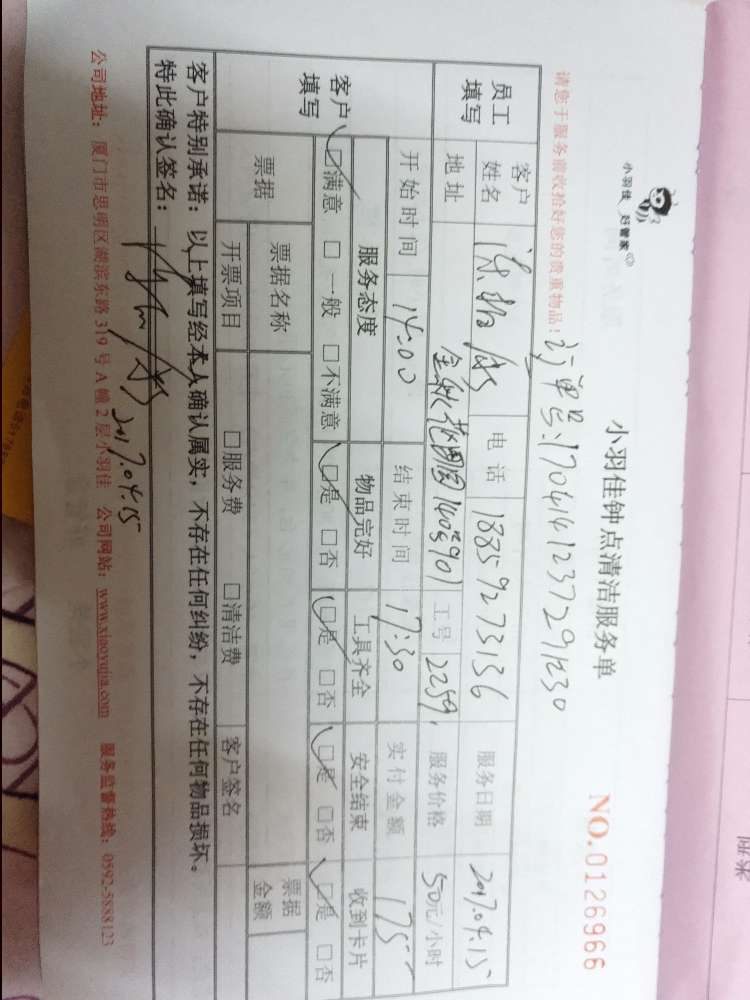 小羽佳 好管家
小羽佳钟点清洁服务单
NO.0126966
请您于服务前收拾好您的贵重物品!
订单号:
员工填写
客户姓名
电话 18859273136
服务日期 2017.04.15
地址
工号 2259
服务价格 50元/小时
开始时间 14:00
结束时间 17:30
实付金额 175
客户填写
服务态度 物品完好 工具齐全 安全结束 收到卡片
□满意 □一般 □不满意 □是 □否 □是 □否 □是 □否 □是 □否
票据
票据名称
票据金额
开票项目 □服务费 □清洁费 客户签名
客户特别承诺:以上填写经本人确认属实,不存在任何纠纷,不存在任何物品损坏。
特此确认签名:
2017.04.15
公司地址:厦门市思明区湖滨东路 319 号 A 幢 2 层小羽佳 公司网站:www.xiaoyujia.com 服务监督热线:0592-5888123